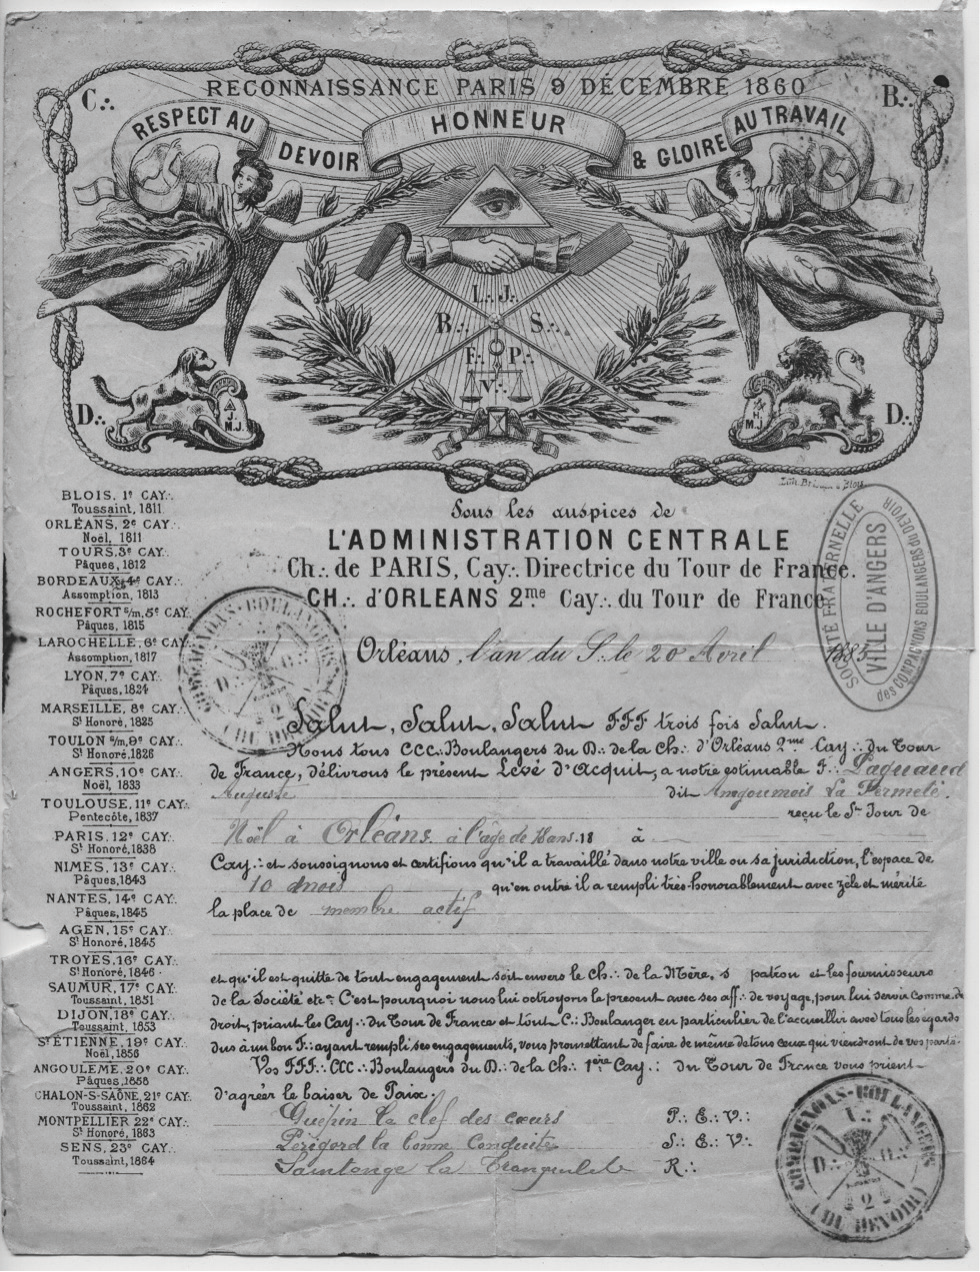 RECONNAISSANCE PARIS 9 DÉCEMBRE 1860
C∴ B∴
RESPECT AU DEVOIR HONNEUR & GLOIRE AU TRAVAIL
L∴ J∴
B∴ S∴
F∴ P∴
V∴
D∴ D∴
J. M.J.
M.J.
BLOIS, 1e CAY∴
Toussaint, 1811
ORLÉANS, 2e CAY∴
Noël, 1811
TOURS, 3e CAY∴
Pâques, 1812
BORDEAUX, 4e CAY∴
Assomption, 1813
ROCHEFORT s/m, 5e CAY∴
Pâques, 1815
LAROCHELLE, 6e CAY∴
Assomption, 1817
LYON, 7e CAY∴
Pâques, 1824
MARSEILLE, 8e CAY∴
St Honoré, 1825
TOULON s/m, 9e CAY∴
St Honoré, 1826
ANGERS, 10e CAY∴
Noël, 1833
TOULOUSE, 11e CAY∴
Pentecôte, 1837
PARIS, 12e CAY∴
St Honoré, 1838
NIMES, 13e CAY∴
Pâques, 1843
NANTES, 14e CAY∴
Pâques, 1845
AGEN, 15e CAY∴
St Honoré, 1845
TROYES, 16e CAY∴
St Honoré, 1846
SAUMUR, 17e CAY∴
Toussaint, 1851
DIJON, 18e CAY∴
Toussaint, 1853
St ÉTIENNE, 19e CAY∴
Noël, 1856
ANGOULEME, 20e CAY∴
Pâques, 1858
CHALON-S-SAÔNE, 21e CAY∴
Toussaint, 1862
MONTPELLIER 22e CAY∴
St Honoré, 1863
SENS, 23e CAY∴
Toussaint, 1864
Sous les auspices de
L'ADMINISTRATION CENTRALE
Ch∴ de PARIS, Cay∴ Directrice du Tour de France.
CH∴ d'ORLEANS 2me Cay∴ du Tour de France
SOCIÉTÉ FRATERNELLE
VILLE D'ANGERS
des COMPAGNONS BOULANGERS du DEVOIR
COMPAGNONS-BOULANGERS
(DU DEVOIR)
Orléans, l'an du S∴ le 20 Avril 1883
Salut, Salut, Salut FFF trois fois Salut.
Nous tous CCC∴ Boulangers du D∴ de la Ch∴ d'Orléans 2me Cay∴ du Tour
de France, délivrons le présent Levé d'Acquit, a notre estimable F∴ Paquaud
Auguste dit Angoumois La Fermeté.
reçu le St Jour de
Noël à Orléans à l'âge de 18 ans. 18 à
Cay∴ et soussignons et certifions qu'il a travaillé dans notre ville ou sa juridiction, l'espace de
10 mois qu'en outre il a rempli très-honorablement avec zèle et mérite
la place de membre actif
et qu'il est quitte de tout engagement soit envers le Ch∴ de la Mère, s patron et les fournisseurs
de la Société etc. C'est pourquoi nous lui octroyons le présent avec ses aff∴ de voyage, pour lui servir comme de
droit, priant les Cay∴ du Tour de France et tout C∴ Boulanger en particulier de l'accueillir avec tous les égards
dus à un bon F∴ ayant rempli ses engagements, vous promettant de faire de même de tous ceux qui viendront de vos parts.
Vos FFF∴ CCC∴ Boulangers du D∴ de la Ch∴ 1ère Cay∴ du Tour de France vous prient
d'agréer le baiser de Paix.
Guépin la clef des cœurs P∴ E∴ V∴
Périgord la bonne Conduite S∴ E∴ V∴
Saintonge la Tranquilité R∴
COMPAGNONS-BOULANGERS
D∴
2
(DU DEVOIR)